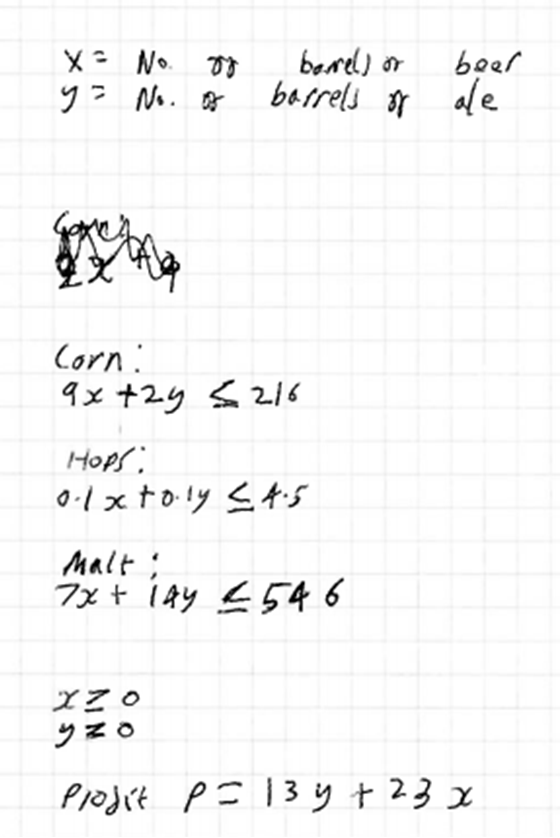 x = No. of barrels of beer
y = No. of barrels of ale
Corn:
9x + 2y ≤ 216
Hops:
0.1x + 0.1y ≤ 4.5
Malt:
7x + 14y ≤ 546
x ≥ 0
y ≥ 0
Profit P = 13y + 23x